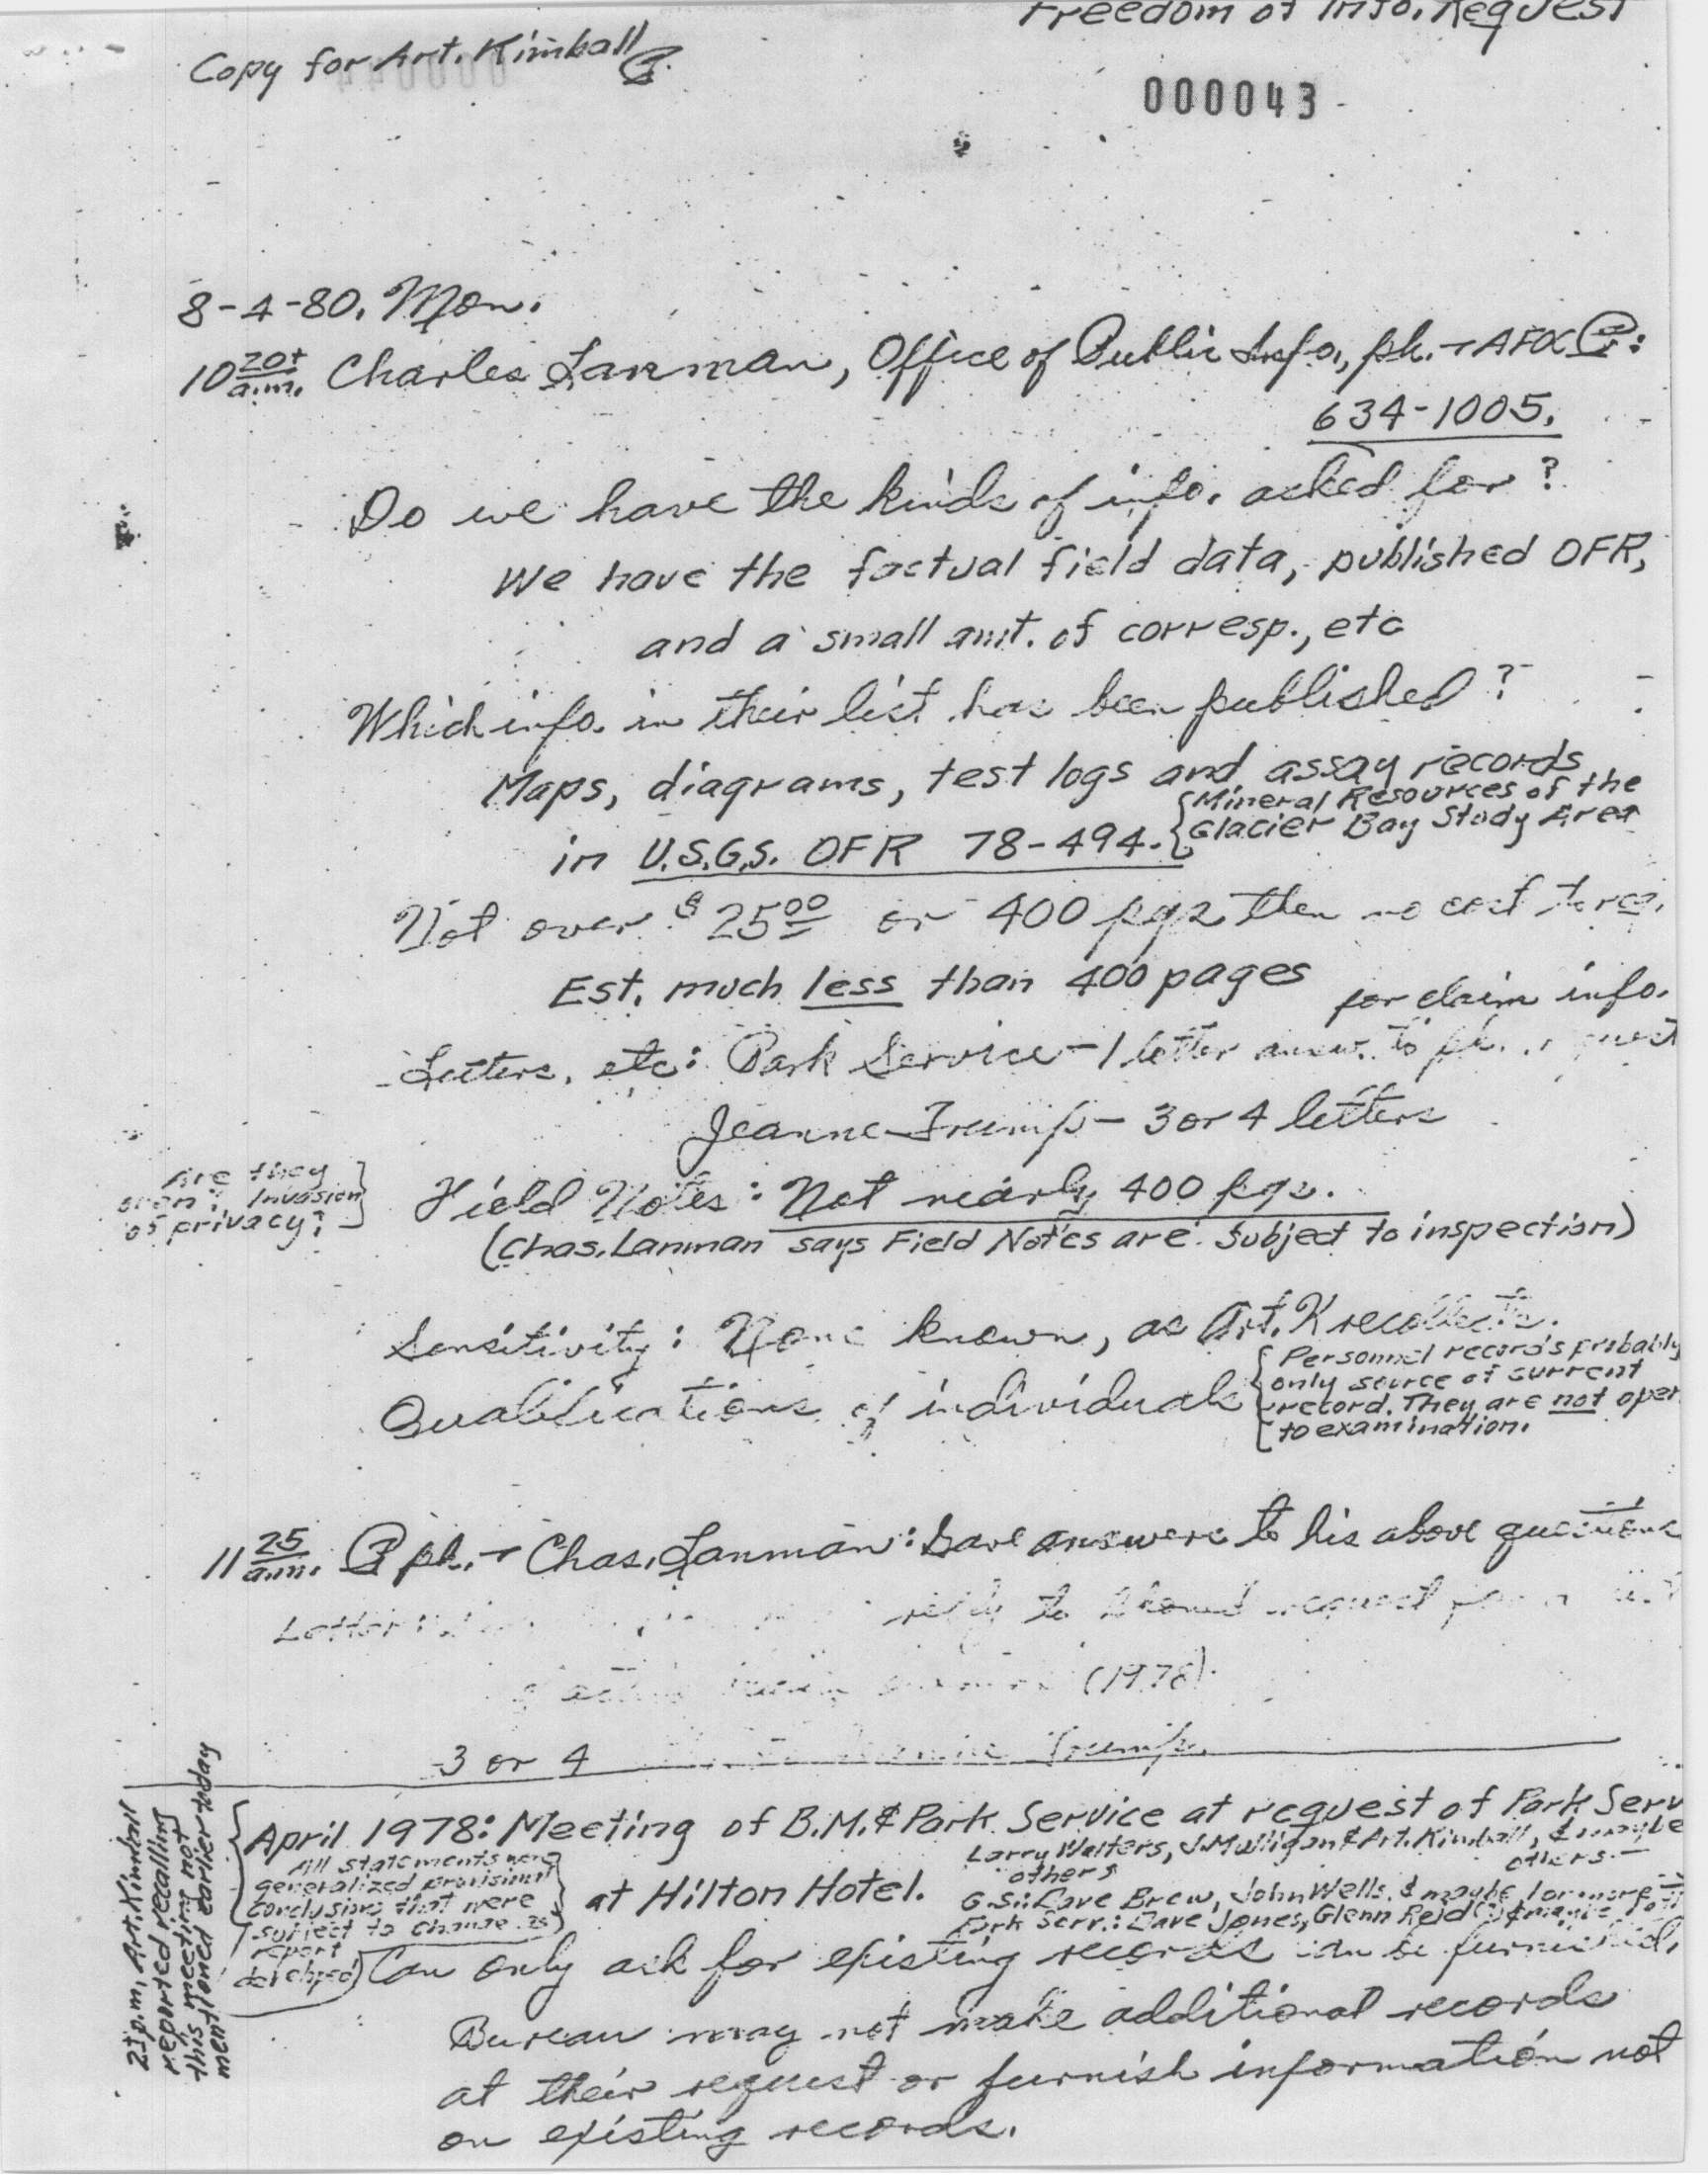 Freedom of Info. Request
Copy for Art. Kimball
000043
8-4-80. Mon.
10 20+ a.m. Charles Lanman, Office of Public Info., ph. → AFOC P:
634-1005.
Do we have the kinds of info. asked for?
We have the factual field data, published OFR,
and a small amt. of corresp., etc
Which info. in their list has been published?
Maps, diagrams, test logs and assay records
in U.S.G.S. OFR 78-494. { Mineral Resources of the
Glacier Bay Study Area
Not over $25 00 or 400 pgs then no cost to req.
Est. much less than 400 pages
for claim info.
Letters, etc: Park Service - 1 letter answ. to ph. request
Jeanne Trump - 3 or 4 letters
Are they
open? Invasion
of privacy? ]
Field Notes: Not nearly 400 pgs.
(Chas. Lanman says Field Notes are subject to inspection)
Sensitivity: None known, as Art. K recollects.
Qualifications of individuals { Personnel records probably
only source of current
record. They are not open
to examination.
11 25 a.m. P ph. → Chas. Lanman: Gave answers to his above questions
Letter reply to request
(1978).
3 or 4 Jeannie Trump.
2+ p.m, Art. Kimball
reported recalling
this meeting not
mentioned earlier today
April 1978: Meeting of B.M. & Park Service at request of Park Serv
Larry Walters, J. Mulligan & Art. Kimball, & maybe
others
others
at Hilton Hotel.
G.S.: Dave Brew, John Wells, & maybe 1 or more
Park Serv.: Dave Jones, Glenn Reid (?) & maybe
All statements were
generalized provisional
conclusions that were
subject to change as
report
developed
Can only ask for existing records can be furnished.
Bureau may not make additional records
at their request or furnish information not
on existing records.